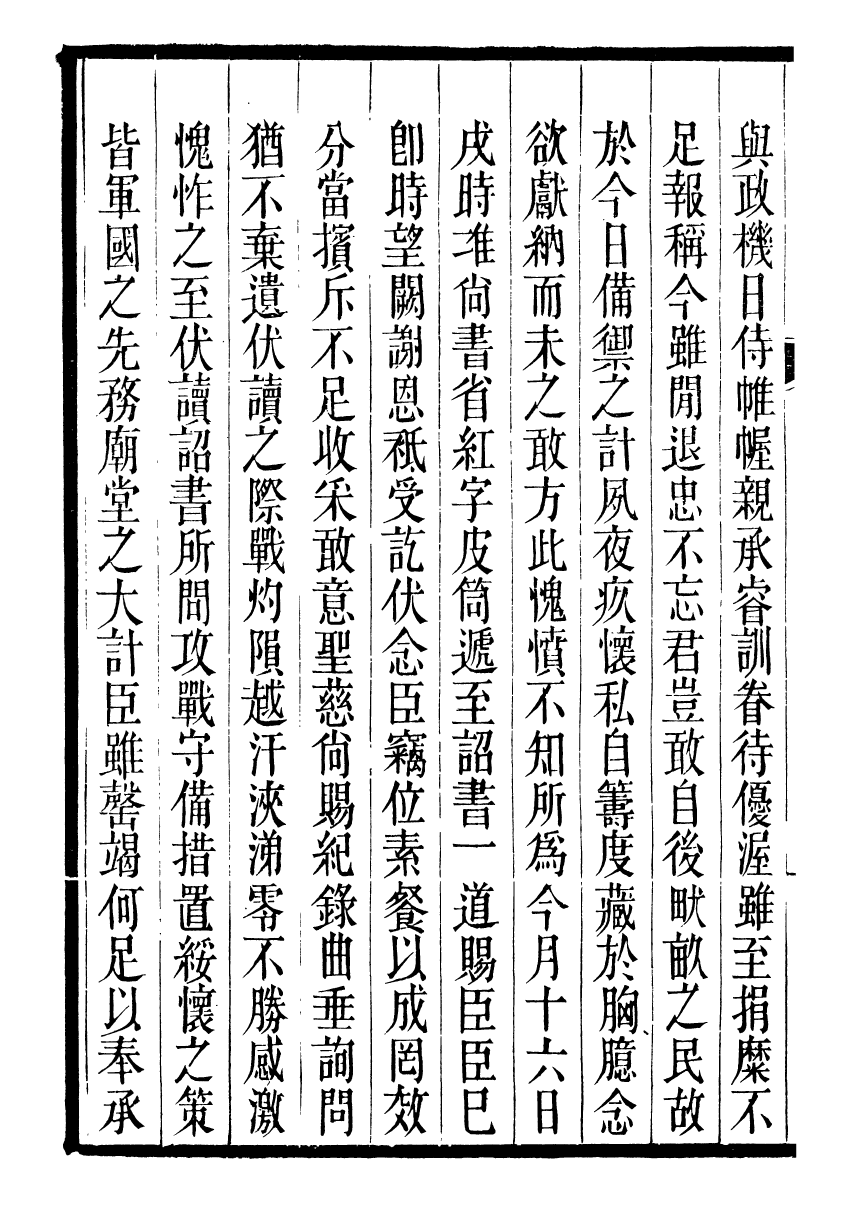 與政機日侍帷幄親承睿訓眷待優渥雖至捐糜不
足報稱今雖閒退忠不忘君豈敢自後畎畝之民故
於今日備禦之計夙夜疚懷私自籌度藏於胸臆念
欲獻納而未之敢方此愧憤不知所爲今月十六日
戌時准尙書省紅字皮筒遞至詔書一道賜臣臣已
卽時望闕謝恩祗受訖伏念臣竊位素餐以成罔效
分當擯斥不足收采敢意聖慈尙賜紀錄曲垂詢問
猶不棄遺伏讀之際戰灼隕越汗浹涕零不勝感激
愧怍之至伏讀詔書所問攻戰守備措置綏懷之策
皆軍國之先務廟堂之大計臣雖罄竭何足以奉承